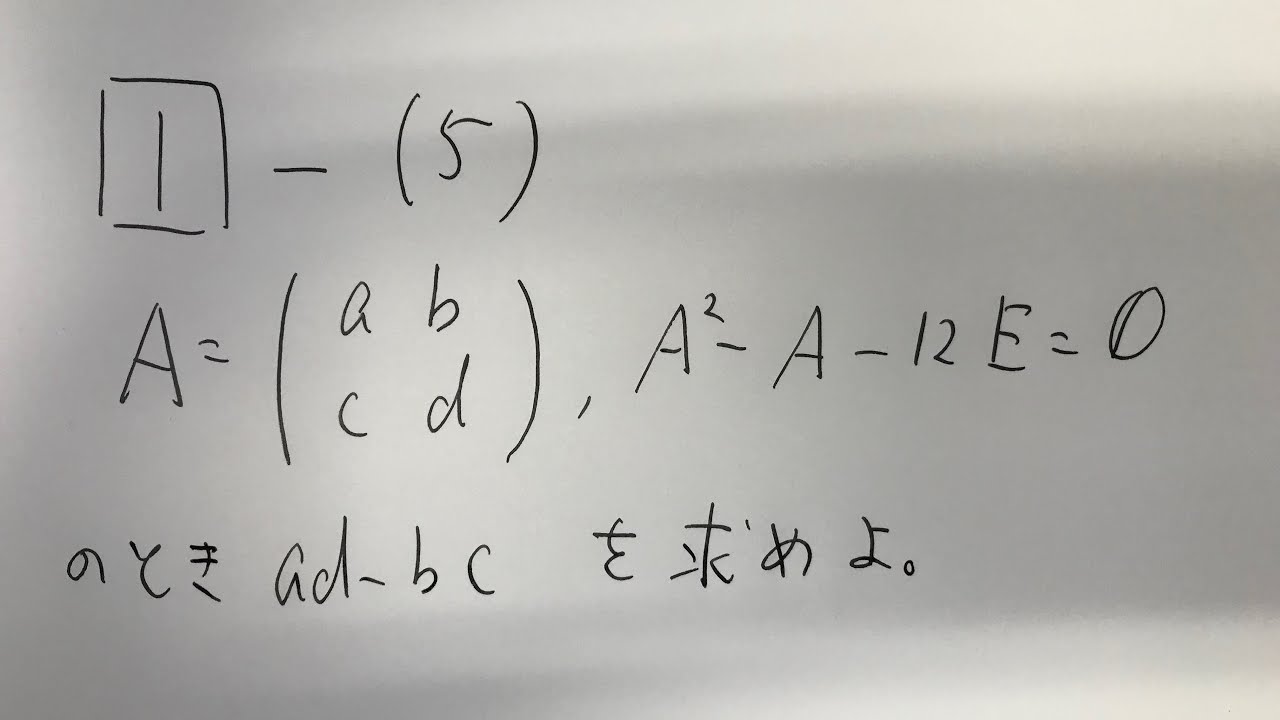 1 - (5)
A = ( a b
c d ), A² - A - 12E = O
のとき ad - bc を求めよ。